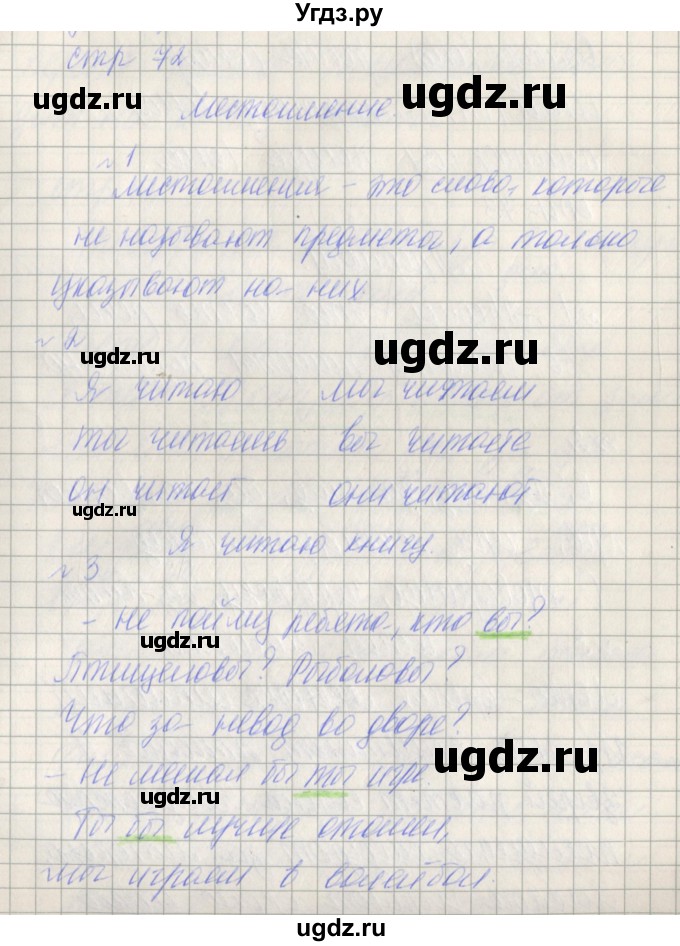 Угдз.ру
стр 72
ugdz.ru ugdz.ru
Местоимение.
№1
Местоимения - это слова, которые
не называют предметы, а только
указывают на них.
№2
ugdz.ru ugdz.ru
Я читаю мы читаем
ты читаешь вы читаете
он читает они читают
ugdz.ru
Я читаю книгу.
№3
- Не пойму ребята, кто вы?
ugdz.ru
Птицеловы? Рыболовы?
Что за невод во дворе?
ugdz.ru
- Не мешал бы ты игре.
ugdz.ru
Ты бы лучше отошел,
мы играем в волейбол.
ugdz.ru